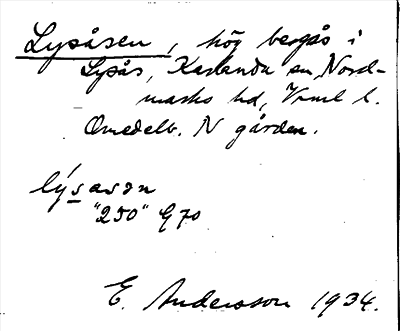 Lysåsen, hög bergås i
Lysås, Karlanda sn, Nord-
marks hd, Vrml l.
Omedelb. N gården.
lýsasən
"250" G70
E. Andersson 1934.